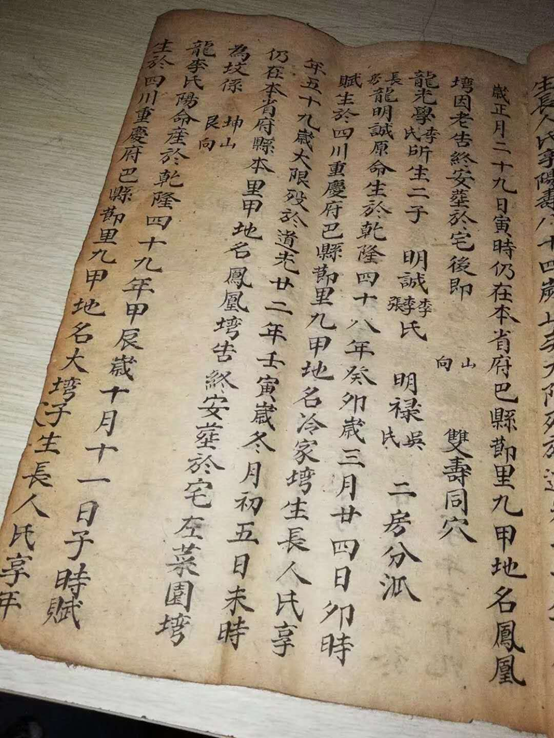 生長人氏享陽壽八十四歲
歲正月二十九日寅時仍在本省府巴縣節里九甲地名鳳凰
塆因老告終安葬於宅後即 山向 雙壽同穴
龍光學李氏所生二子 明誠李張氏 明祿吳氏 二房分泒
長房龍明誠原命生於乾隆四十八年癸卯歲三月廿四日卯時
賦生於四川重慶府巴縣節里九甲地名冷家塆生長人氏享
年五十九歲大限歿於道光廿二年壬寅歲冬月初五日未時
仍在本省府縣本里甲地名鳳凰塆告終安葬於宅左菜園塆
為坟係 坤山艮向
龍李氏陽命産於乾隆四十九年甲辰歲十月十一日子時賦
生於四川重慶府巴縣節里九甲地名大塆子生長人氏享年